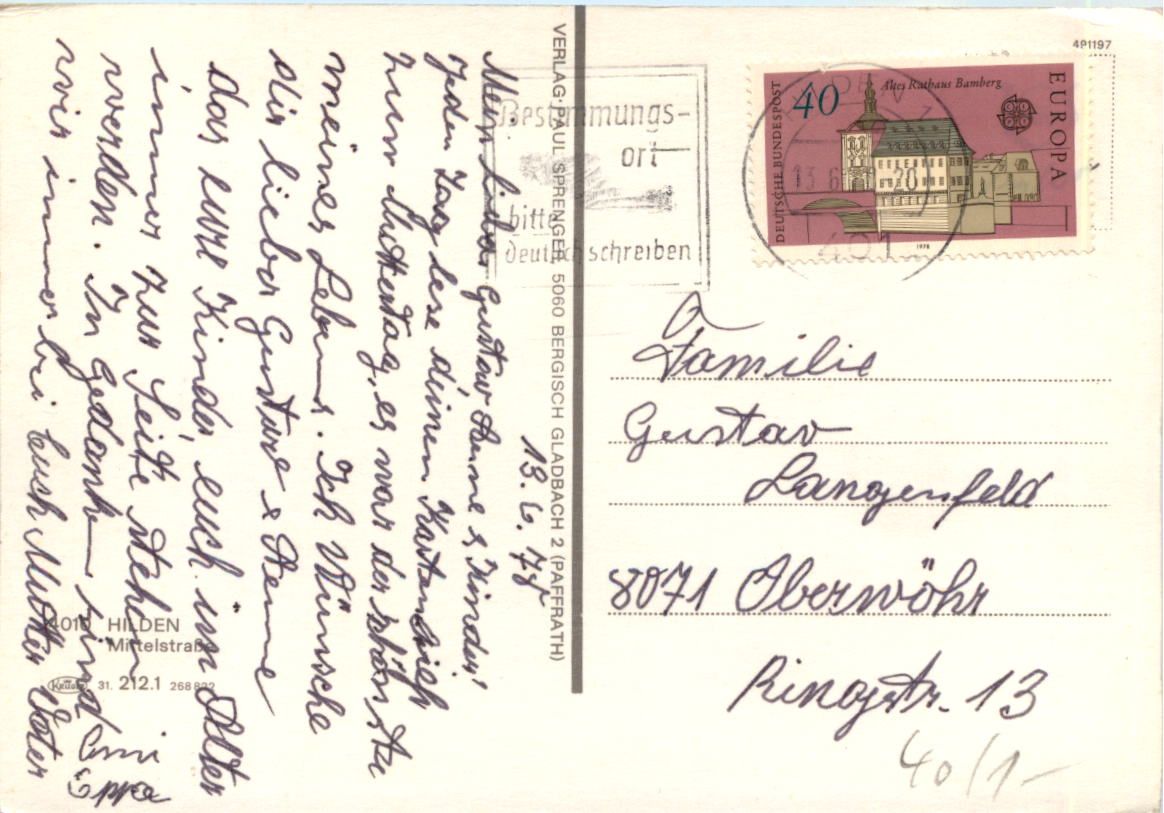 13. 6. 78
Mein lieber Gustav, Anne & Kinder!
Jeden Tag lese deinen Kartenbrief
zum Muttertag, es war der schönste
meines Lebens. Ich Wünsche
dir lieber Gustav & Anne
das eure Kinder, euch im Alter
immer zur Seite stehen
werden. In Gedanken sind
wir immer bei Euch Mutter Vater
Omi
Oppa
4010 HILDEN
Mittelstraße
Krüger 31. 212.1 268 822
VERLAG PAUL SPRENGER 5060 BERGISCH GLADBACH 2 (PAFFRATH)
Bestimmungs-
ort
bitte
deutsch schreiben
491197
DEUTSCHE BUNDESPOST
40
Altes Rathaus Bamberg
EUROPA
1978
13.6.
20
401
Familie
Gustav
Langenfeld
8071 Oberwöhr
Ringstr. 13
40/1-